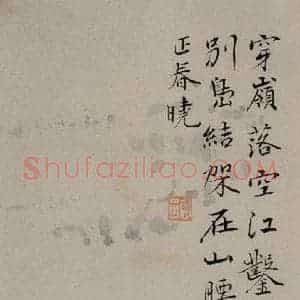 穿嶺落空江鑿
別島結架在山腰
正春曉
Shufaziliao.COM